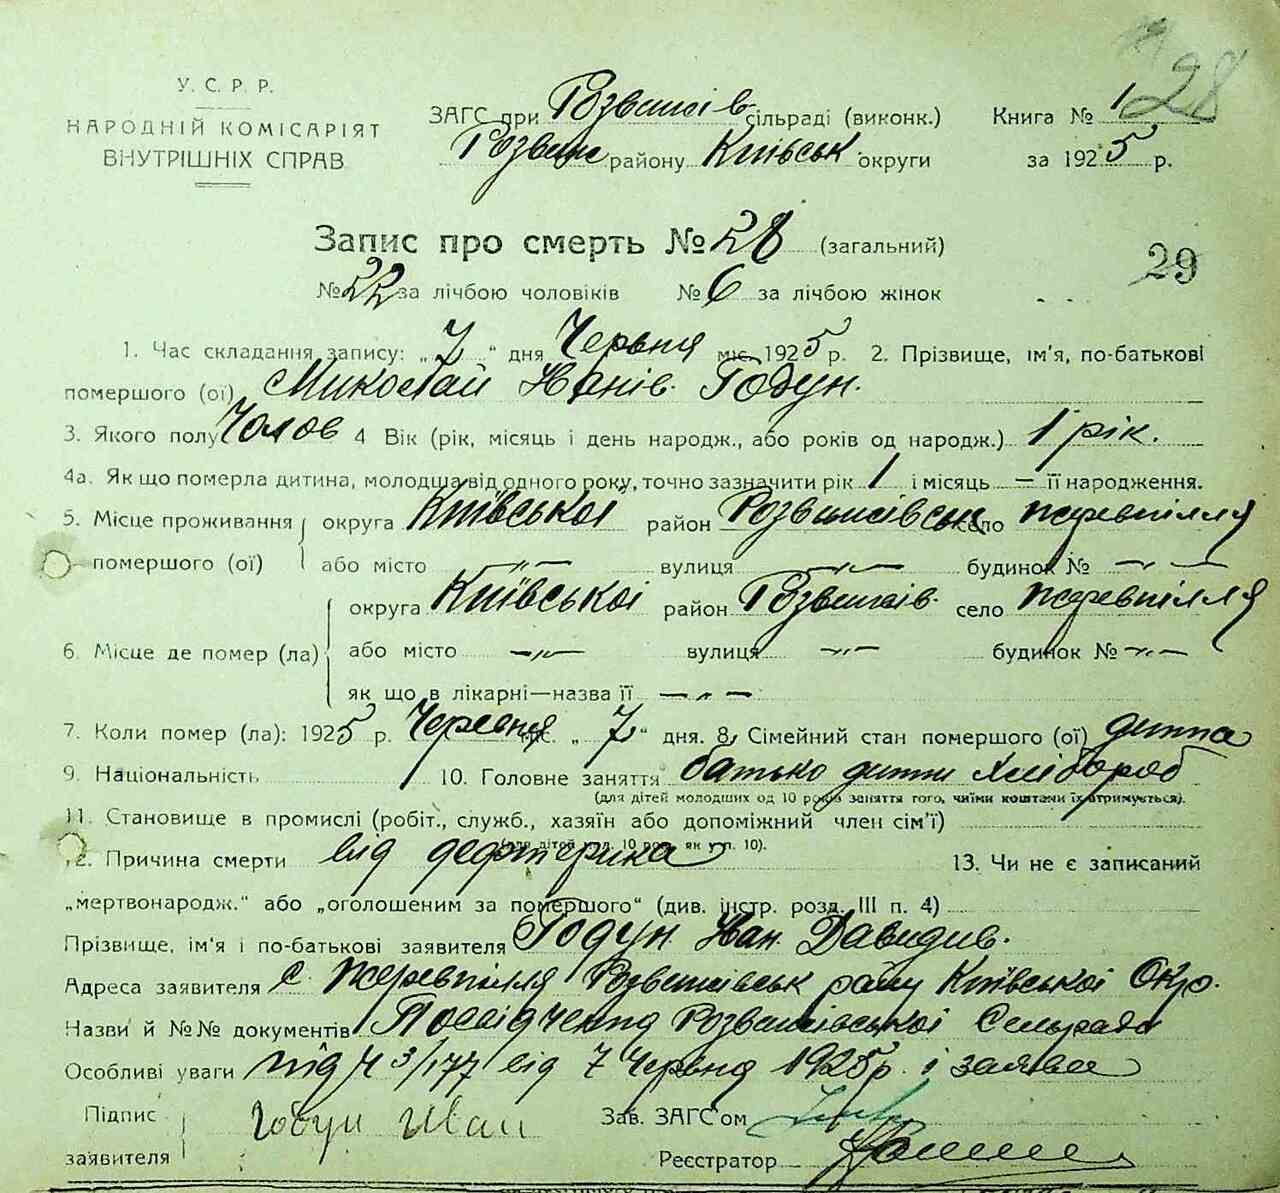 28
У. С. Р. Р.
НАРОДНІЙ КОМІСАРІЯТ
ВНУТРІШНІХ СПРАВ
ЗАГС при Розважів сільраді (виконк.) Книга № 1
Розваж району Київськ округи за 1925 р.
Запис про смерть № 28 (загальний)
29
№ 22 за лічбою чоловіків № 6 за лічбою жінок
1. Час складання запису: „7" дня Червня міс. 1925 р. 2. Прізвище, ім'я, по-батькові
помершого (ої) Миколай Іванів. Годун.
3. Якого полу Чолов 4 Вік (рік, місяць і день народж., або років од народж.) 1 рік.
4а. Як що померла дитина, молодша від одного року, точно зазначити рік 1 і місяць — її народження.
5. Місце проживання округа Київської район Розважівськ село Жеревпілля
помершого (ої) або місто —„— вулиця —„— будинок № —„—
округа Київської район Розважів. село Жеревпілля
6. Місце де помер (ла) або місто —„— вулиця —„— будинок № —„—
як що в лікарні—назва її —„—
7. Коли помер (ла): 1925 р. Червня міс. „7" дня. 8. Сімейний стан помершого (ої) дитта
9. Національність 10. Головне заняття батько дитти хлібороб
(для дітей молодших од 10 років заняття того, чиїми коштами їх утримується).
11. Становище в промислі (робіт., служб., хазяїн або допоміжний член сім'ї)
(для дітей мол. 10 рок. як у п. 10).
12. Причина смерти від дефтерика 13. Чи не є записаний
„мертвонародж." або „оголошеним за помершого" (див. інстр. розд. III п. 4)
Прізвище, ім'я і по-батькові заявителя Годун Іван Давидив.
Адреса заявителя с. Жеревпілля Розважівськ райну Київської Окр.
Назви й №№ документів Посвідчення Розважівської Сельради
Особливі уваги під Ч 3/177 від 7 Червня 1925 р. і заява
Підпис заявителя Годун Иван Зав. ЗАГС'ом
Реєстратор